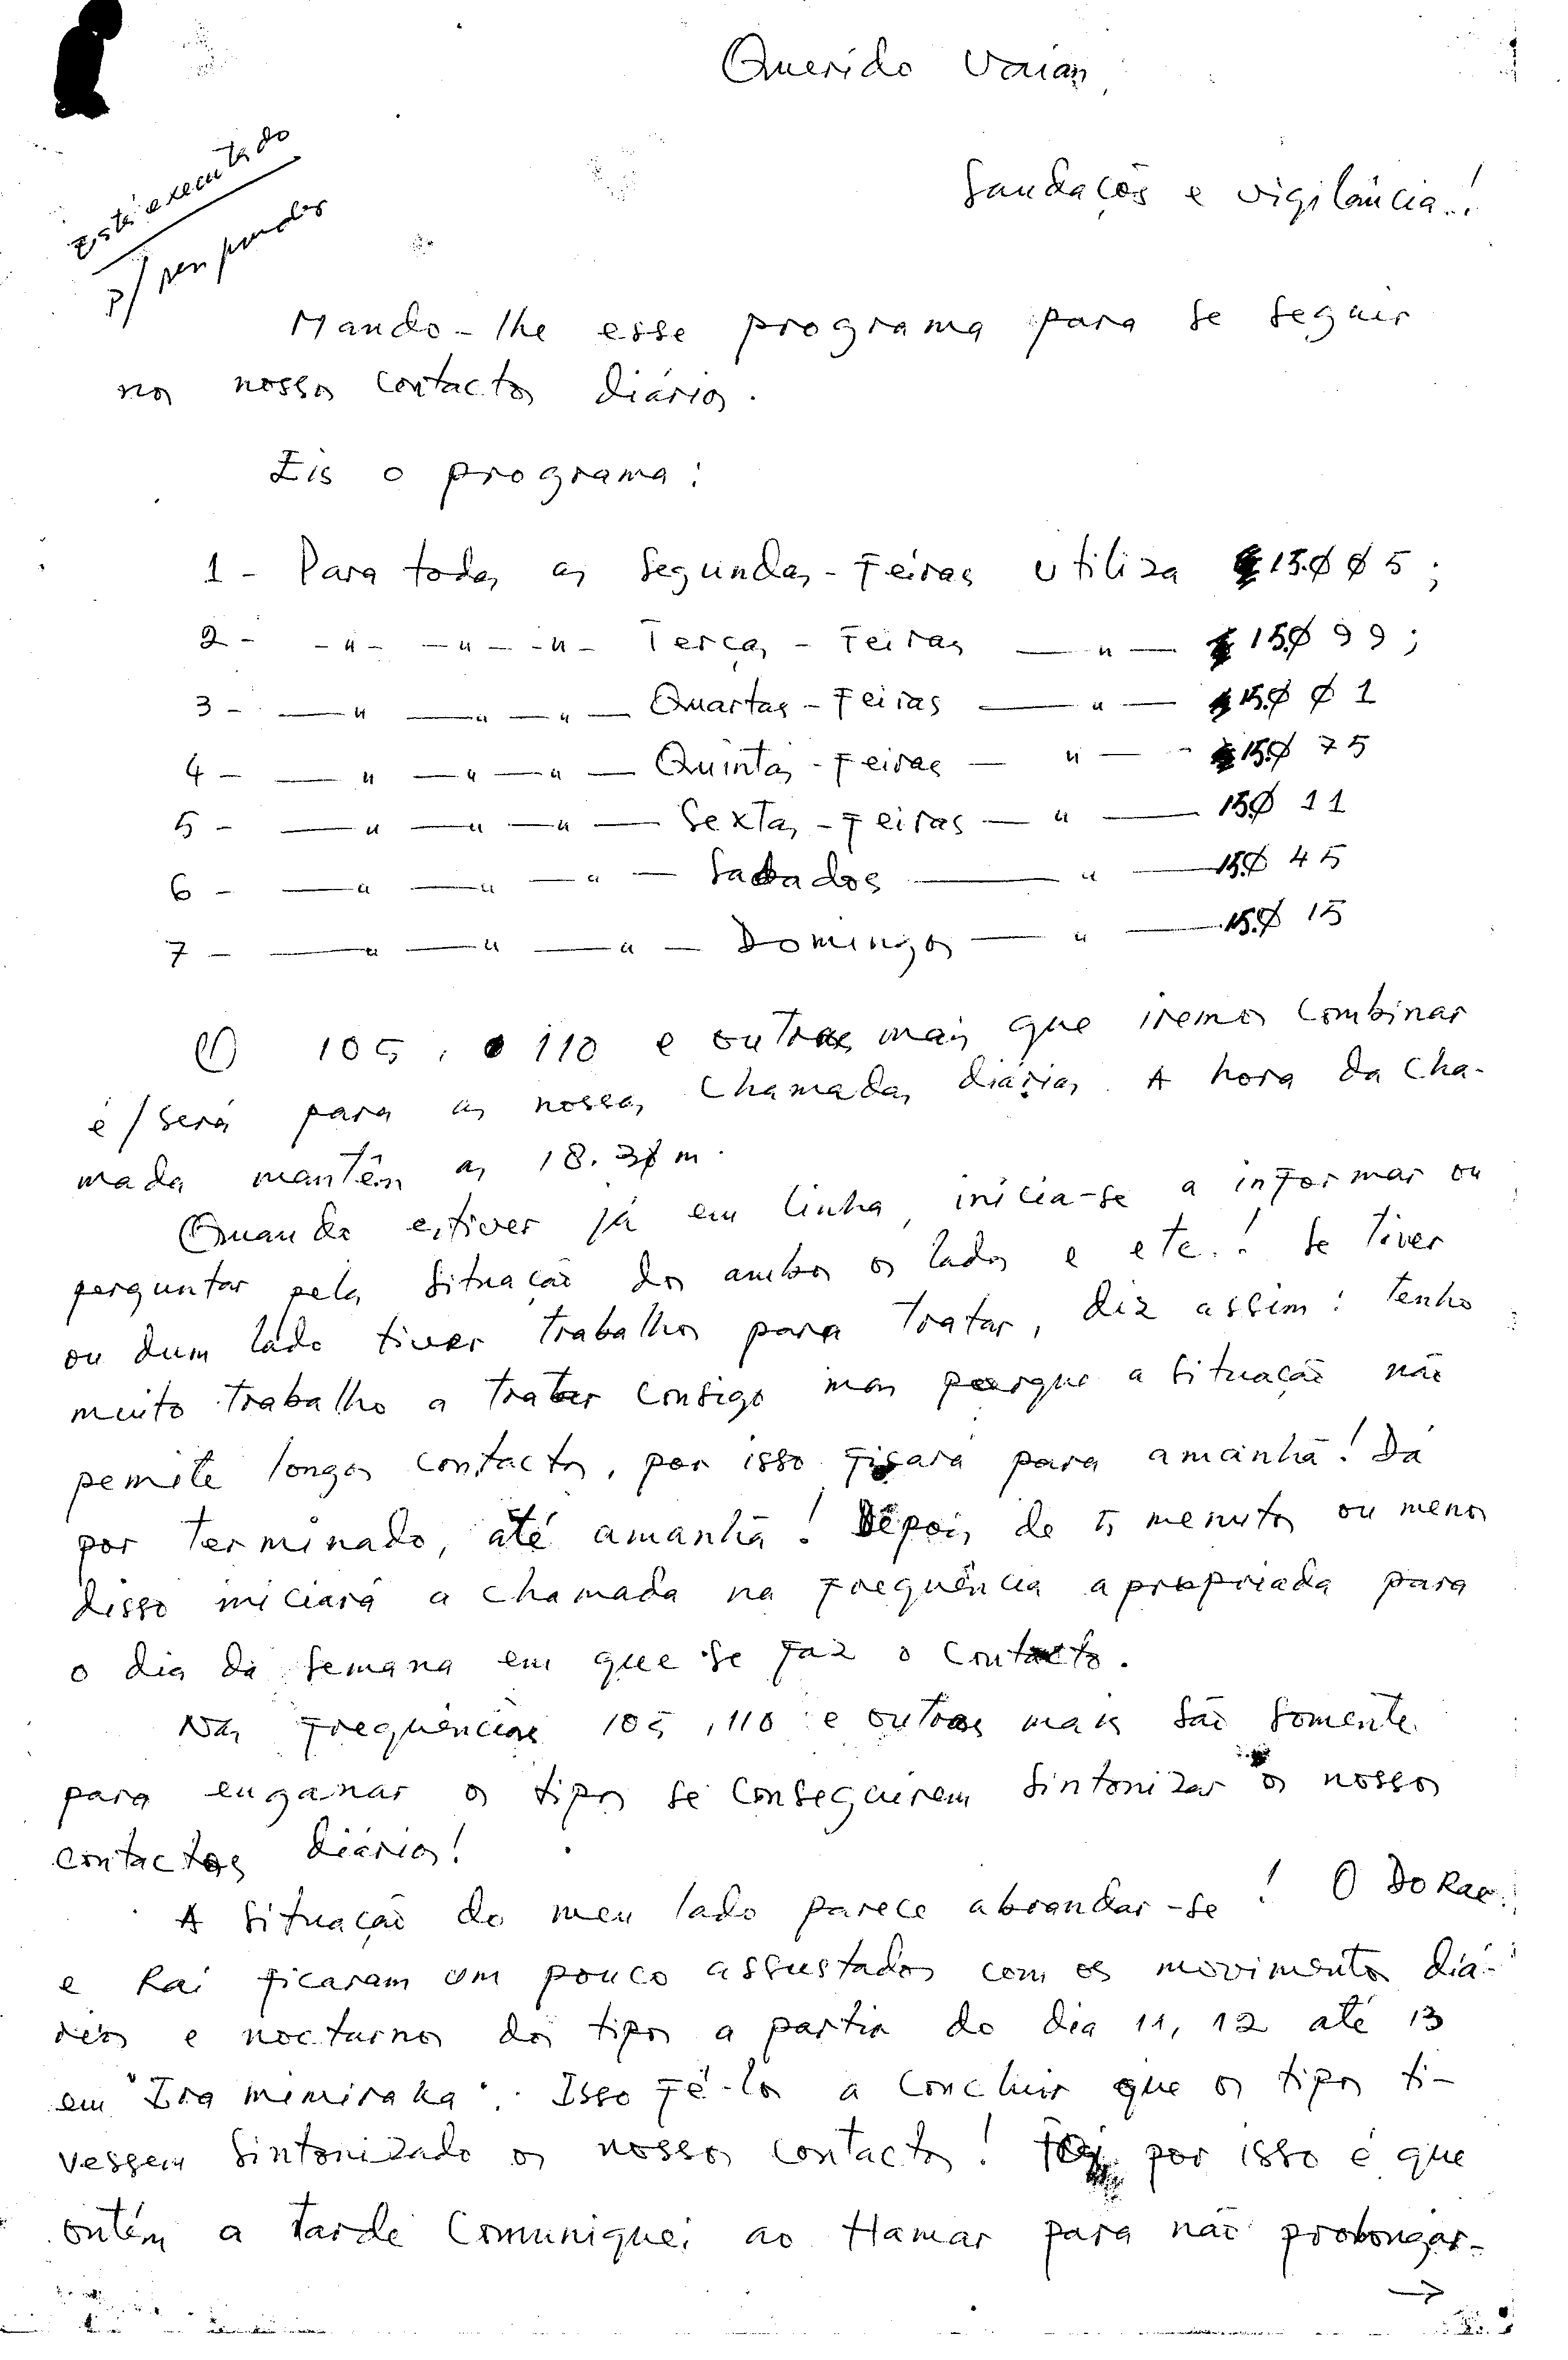 Querido Vaian,
Saudações e vigilância..!
Está executado
p/
Mando-lhe esse programa para se seguir
nos nossos contactos diários.
Eis o programa:
1 - Para todas as Segundas-Feiras utiliza 15.ØØ5;
2 - -"- -"- -"- Terças-Feiras -"- 15Ø 99;
3 - -"- -"- -"- Quartas-Feiras -"- 15.Ø Ø1
4 - -"- -"- -"- Quintas-Feiras -"- 15.Ø 75
5 - -"- -"- -"- Sextas-Feiras -"- 15Ø 11
6 - -"- -"- -"- Sabados -"- 15.Ø 45
7 - -"- -"- -"- Domingos -"- 15.Ø 15
105, 110 e outras mais que iremos combinar
é/será para as nossas chamadas diárias. A hora da cha-
mada mantêm as 18.3Øm.
Quando estiver já em linha, inicia-se a informar ou
perguntar pela situação dos ambos os lados e etc.! Se tiver
ou dum lado tiver trabalhos para tratar, diz assim: tenho
muito trabalho a tratar consigo mas porque a situação não
pemite longos contactos, por isso ficará para amanhã! Dá
por terminado, até amanhã! Depois de 5 menutos ou menos
disso iniciará a chamada na frequência apropriada para
o dia da semana em que se faz o contacto.
Nas frequências 105, 110 e outras mais são somente
para enganar os tipos se conseguirem sintonizar os nossos
contactos diários!
A situação do meu lado parece abrandar-se! O Dorae
e Rai ficaram um pouco assustados com os movimentos diá-
rios e nocturnos dos tipos a partir do dia 11, 12 até 13
em "Ira mimiraka". Isso fê-los a concluir que os tipos ti-
vessem sintonizado os nossos contactos! Foi por isso é que
ontém a tarde comuniquei ao Hamar para não prolongar-
→